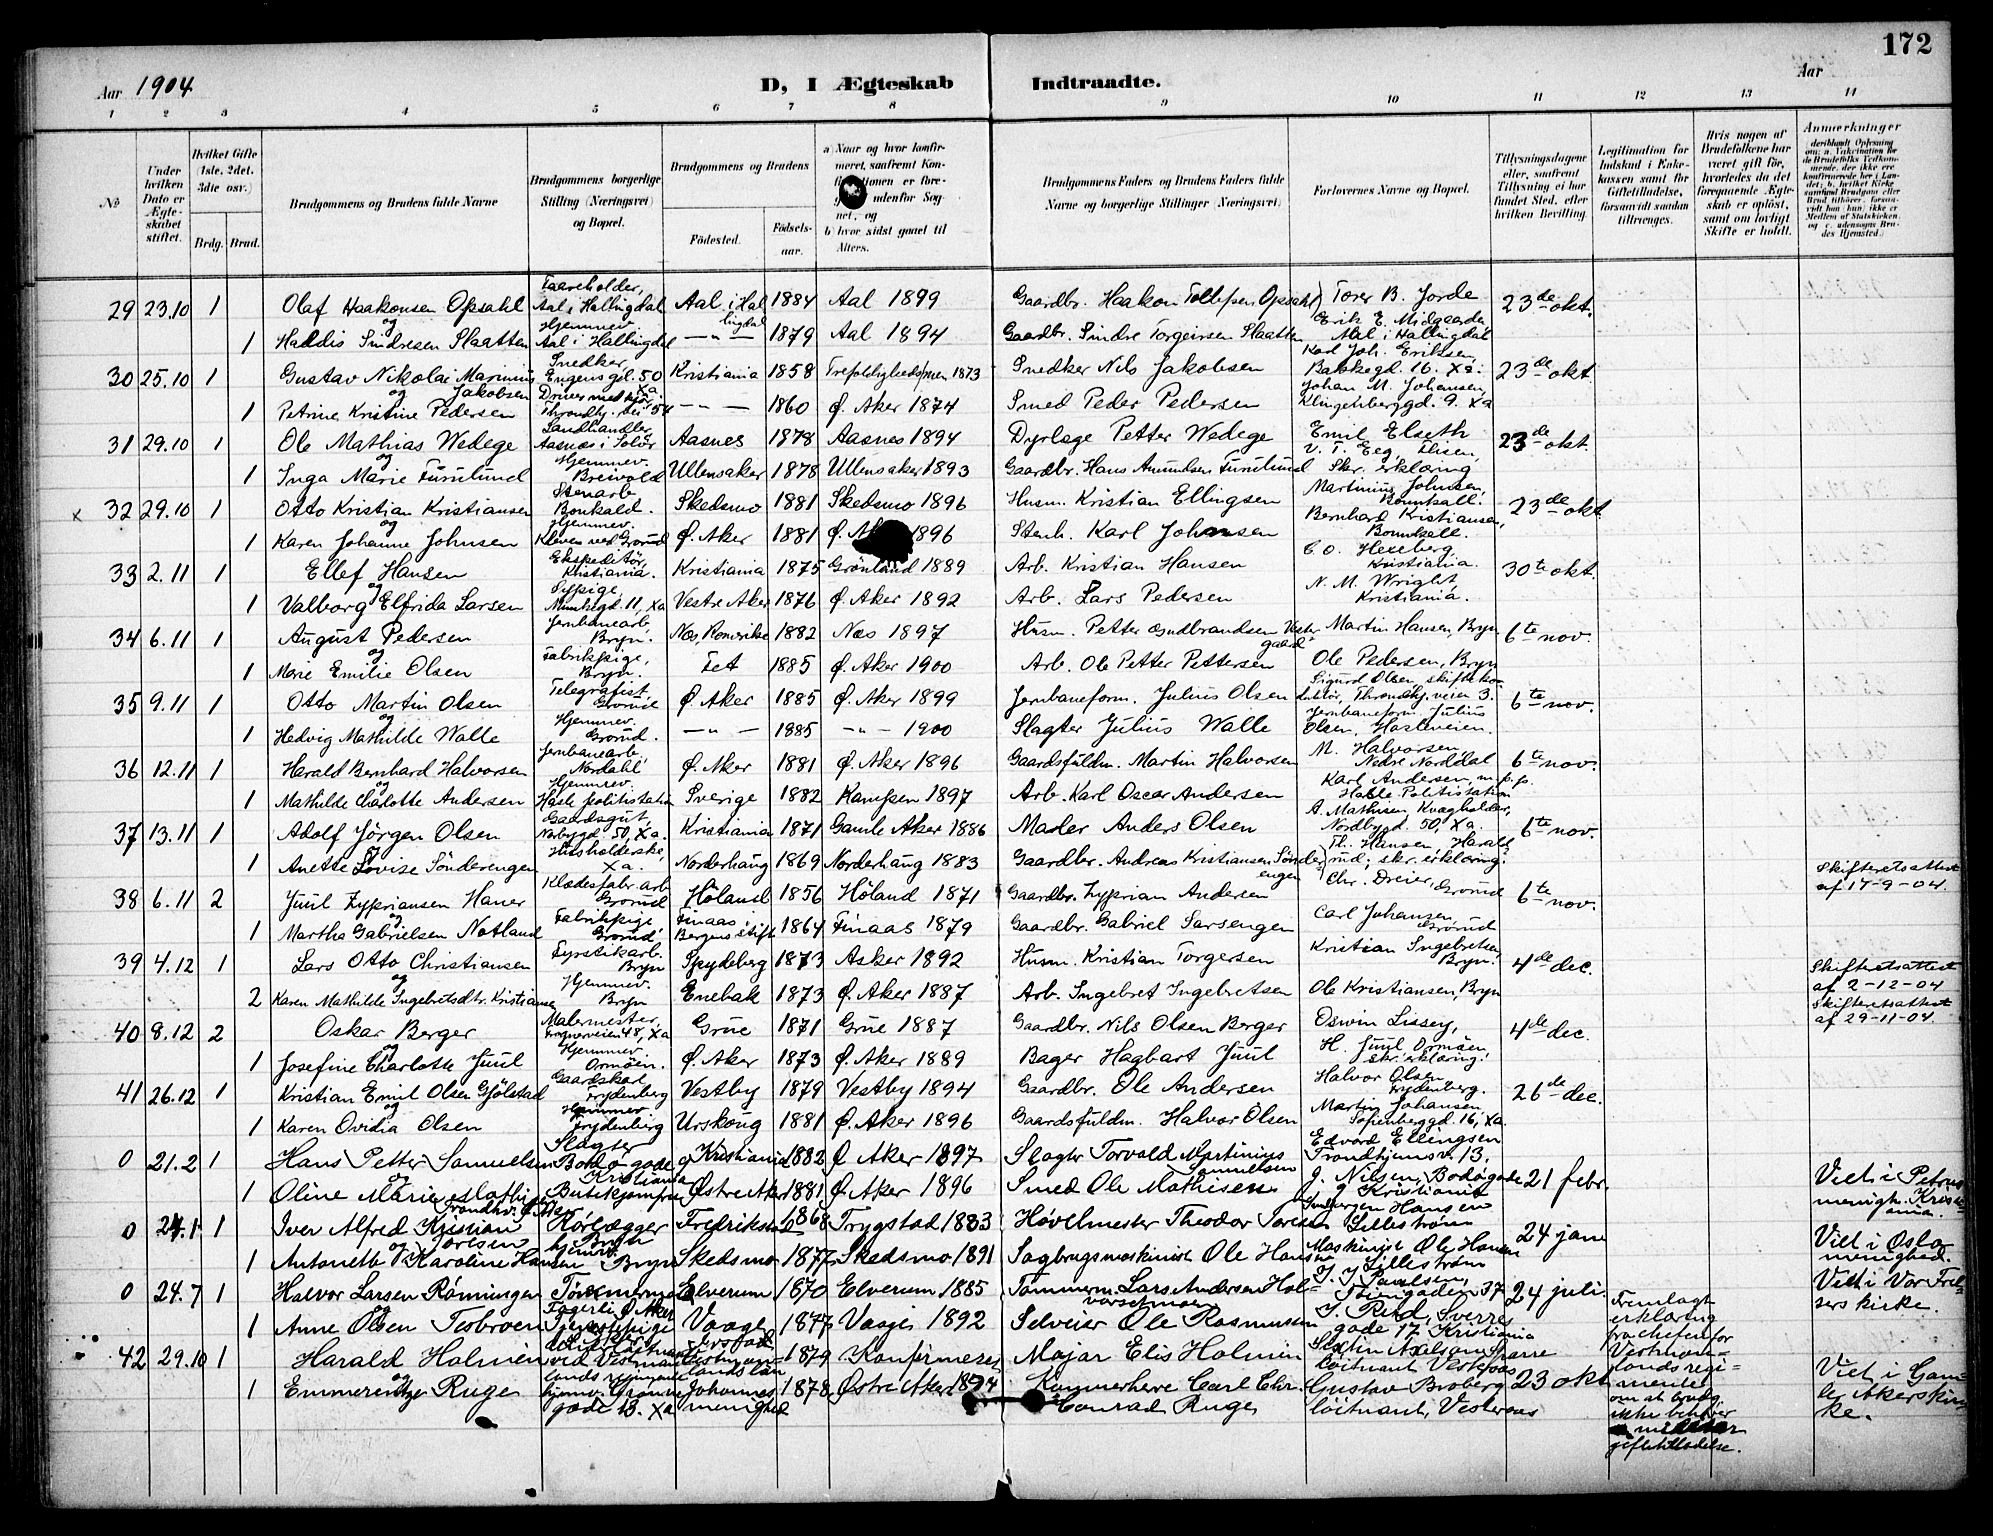 172
Aar 1904 D, I Ægteskab Indtraadte. Aar
1 2 3 4 5 6 7 8 9 10 11 12 13 14
No
Under hvilken Dato er Ægteskabet stiftet.
Hvilket Gifte (1ste, 2det, 3die osv.)
Brdg. Brud.
Brudgommens og Brudens fulde Navne
Brudgommens borgerlige Stilling (Næringsvei) og Bopæl.
Brudgommens og Brudens
Fødested. Fødsels-aar.
Brudgommens Faders og Brudens Faders fulde Navne og borgerlige Stillinger (Næringsvei)
Forlovernes Navne og Bopæl.
Tillysningsdagene eller, saafremt Tillysning ei har fundet Sted, efter hvilken Bevilling.
Legitimation for Indskud i Enkekassen samt for Giftetilladelse, forsaavidt saadan tiltrænges.
Hvis nogen af Brudefolkene har været gift før, hvorledes da det foregaaende Ægteskab er opløst, samt om lovligt Skifte er holdt.
Anmærkninger
29 23.10 1 Olaf Haakonsen Opsahl Aal i Hallingdal Aal i Hallingdal 1884 Aal 1899 Gaardbr. Haakon Tollefsen Opsahl Torer B. Jorde 23de okt.
og Hjemmev. Erik E. Midgaarden
1 Haldis Sindresen Slaatten Aal i Hallingdal — " — 1879 Aal 1894 Gaardbr. Sindre Torgeirsen Slaatten Aal i Hallingdal
30 25.10 1 Gustav Nikolai Marinius Jakobsen Snedker, Engensgd. 50 Kristiania 1858 Trefoldighedsmen 1873 Snedker Nils Jakobsen Karl Joh. Eriksen, Bakkegd. 16. Xa. 23de okt
og Johan M. Johansen,
1 Petrine Kristine Pedersen Throndhj. vei 54 — " — 1860 Ø. Aker 1874 Smed Peder Pedersen Klingenberggd. 9. Xa
31 29.10 1 Ole Mathias Wedege Landhandler Aasnæs i Solør Aasnes 1878 Aasnes 1894 Dyrlæge Petter Wedege Emil Elseth 23de okt.
og Hjemmev.
1 Inga Marie Furulund Breivold Ullensaker 1878 Ullensaker 1893 Gaardbr. Hans Amundsen Furulund Skr. erklæring
x 32 29.10 1 Otto Kristian Kristiansen Stenarb. Skedsmo 1881 Skedsmo 1896 Husm. Kristian Ellingsen Martinius Johnsen, 23de okt.
og Hjemmev. Bernhard Kristiansen,
1 Karen Johanne Johnsen Kleven ved Grorud Ø. Aker 1881 1896 Stenh. Karl Johansen
33 2.11 1 Ellef Hansen Ekspeditør, Kristiania. Kristiania 1875 Grønland 1889 Arb. Kristian Hansen Kristiania. 30te okt.
og Sypige, N. M. Wright,
1 Valborg Elfrida Larsen Munkegd. 11, Xa Vestre Aker 1876 Ø. Aker 1892 Arb. Lars Pedersen Kristiania.
34 6.11 1 August Pedersen Jernbanearb. Bryn. Næs, Romerike 1882 Næs 1897 Husm. Petter Gudbrandsen Vestergaard Martin Hansen, Bryn 6te nov.
og Fabrikpige,
1 Marie Emilie Olsen Bryn. Fet 1885 Ø. Aker 1900 Arb. Ole Petter Pettersen Ole Pedersen, Bryn
35 9.11 1 Otto Martin Olsen Telegrafist, Grorud Ø. Aker 1885 Ø. Aker 1899 Jernbaneform. Julius Olsen Sigurd Olsen, skiftekonduktør, Throndhj. veien 3. 6te nov.
og Hjemmev. Jernbaneform. Julius
1 Hedvig Mathilde Walle Grorud. — " — 1885 — " — 1900 Slagter Julius Walle Olsen, Hasleveien.
36 12.11 1 Harald Bernhard Halvorsen Jernbanearb. Nordahl Ø. Aker 1881 Ø. Aker 1896 Gaardsfuldm. Martin Halvorsen M. Halvorsen, Nedre Norddal 6te nov.
og Hjemmev. Karl Andersen, m. p. p.
1 Mathilde Charlotte Andersen Hasle politistation Sverige 1882 Kampen 1897 Arb. Karl Oscar Andersen Hasle Politistation
37 13.11 1 Adolf Jørgen Olsen Gaardsgut, Norbygd. 50, Xa. Kristiania 1871 Gamle Aker 1886 Maler Anders Olsen A. Mathisen Kvægholder, Nordbygd. 50, Xa. 6te nov.
og Husholderske, Th. Hansen, Harald-
1 Anette Lovise Sønderengen Xa. Norderhaug 1869 Norderhaug 1883 Gaardbr. Andreas Kristiansen Sønderengen rud; skr. erklæring.
38 6.11 2 Juul Zypriansen Haner Klædesfabr. arb. Grorud Høland 1856 Høland 1871 Gaardbr. Zyprian Andersen Chr. Dreier, Grorud 6te nov. Skifteretsattest af 17-9-04.
og Fabrikpige
1 Martha Gabrielsen Notland Grorud. Finaas i Bergens stift 1864 Finaas 1879 Gaardbr. Gabriel Sarsengen Carl Johansen, Grorud
39 4.12 1 Lars Otto Christiansen Fyrstikarb. Bryn Spydeberg 1873 Asker 1892 Husm. Kristian Torgersen Kristian Ingebretsen Bryn. 4de dec.
og Hjemmev.
2 Karen Mathilde Ingebretsdtr. Kristiansen Bryn Enebak 1873 Ø. Aker 1887 Arb. Ingebret Ingebretsen Ole Kristiansen, Bryn Skifteretsattest af 2-12-04
40 8.12 2 Oskar Berger Malermester, Grue 1871 Grue 1887 Gaardbr. Nils Olsen Berger Oswin Lissey, 4de dec. Skifteretsattest af 29-11-04.
og Hjemmev.
1 Josefine Charlotte Juul Ormøen. Ø. Aker 1873 Ø. Aker 1889 Bager Hagbart Juul H. Juul Ormøen skr. erklæring.
41 26.12 1 Kristian Emil Olsen Gjølstad Gaardskarl Frydenberg Vestby 1879 Vestby 1894 Gaardbr. Ole Andersen Halvor Olsen Frydenberg. 26de dec.
og Hjemmev. Martin Johansen,
1 Karen Ovidia Olsen Frydenberg Urskoug 1881 Ø. Aker 1896 Gaardsfuldm. Halvor Olsen Sofienberggd. 16, Xa.
0 21.2 1 Hans Petter Samuelsen Slagter Bodøgade Kristiania Kristiania 1882 Ø Aker 1897 Slagter Torvald Martinius Samuelsen Edvard Ellingsen Trondhjemsv. 13,
og
1 Oline Marie Mathisen Butikjomfru Østre Aker 1881 Ø. Aker 1896 Smed Ole Mathisen J. Nilsen, Bodøgade 9 Kristiania 21 febr. Viet i Petrus menigh. Kristiania.
0 24.1 1 Iver Alfred Kristian Toresen Rørlægger Bryn Fredrikstad 1868 Trygstad 1883 Høvelmester Theodor Toresen Ingbergen Hansen Lillestrøm 24 jan
og hjemv.
1 Antonette Karoline Hansen Bryn Skedsmo 1877 Skedsmo 1891 Sagbrugsmaskinist Ole Hansen Maskinist Ole Hansen Lillestrøm Viet i Oslo menighed.
0 24.7 1 Halvor Larsen Rønningen Elverum 1870 Elverum 1885 Tømmerm. Lars Andersen Hal- J. J. Paulsen, 37 24 juli. Viet i Vor Frelsers kirke.
og
1 Anne Olsen Tesbroen Tjenestepige Vaage 1877 Vaage 1892 Selveier Ole Rasmussen Sverres gade 17 Kristiania
42 29.10 1 Harald Holmin 1879 Konfirmeret Major Elis Holmin löitnant Vesteraas
og
1 Emmerentze Ruge hjemv. Grønnegade 13. Xa Johannes menighed 1878 Østre Aker 1894 Kammerherre Carl Chr. Conrad Ruge Gustav Broberg löitnant, Vesteraas 23 okt
Fremlagt erklæring fra chefen for Vestmanlands regimente om at brudg. ikke behøver giftetilladelse.
Viet i Gamle Akers kirke.